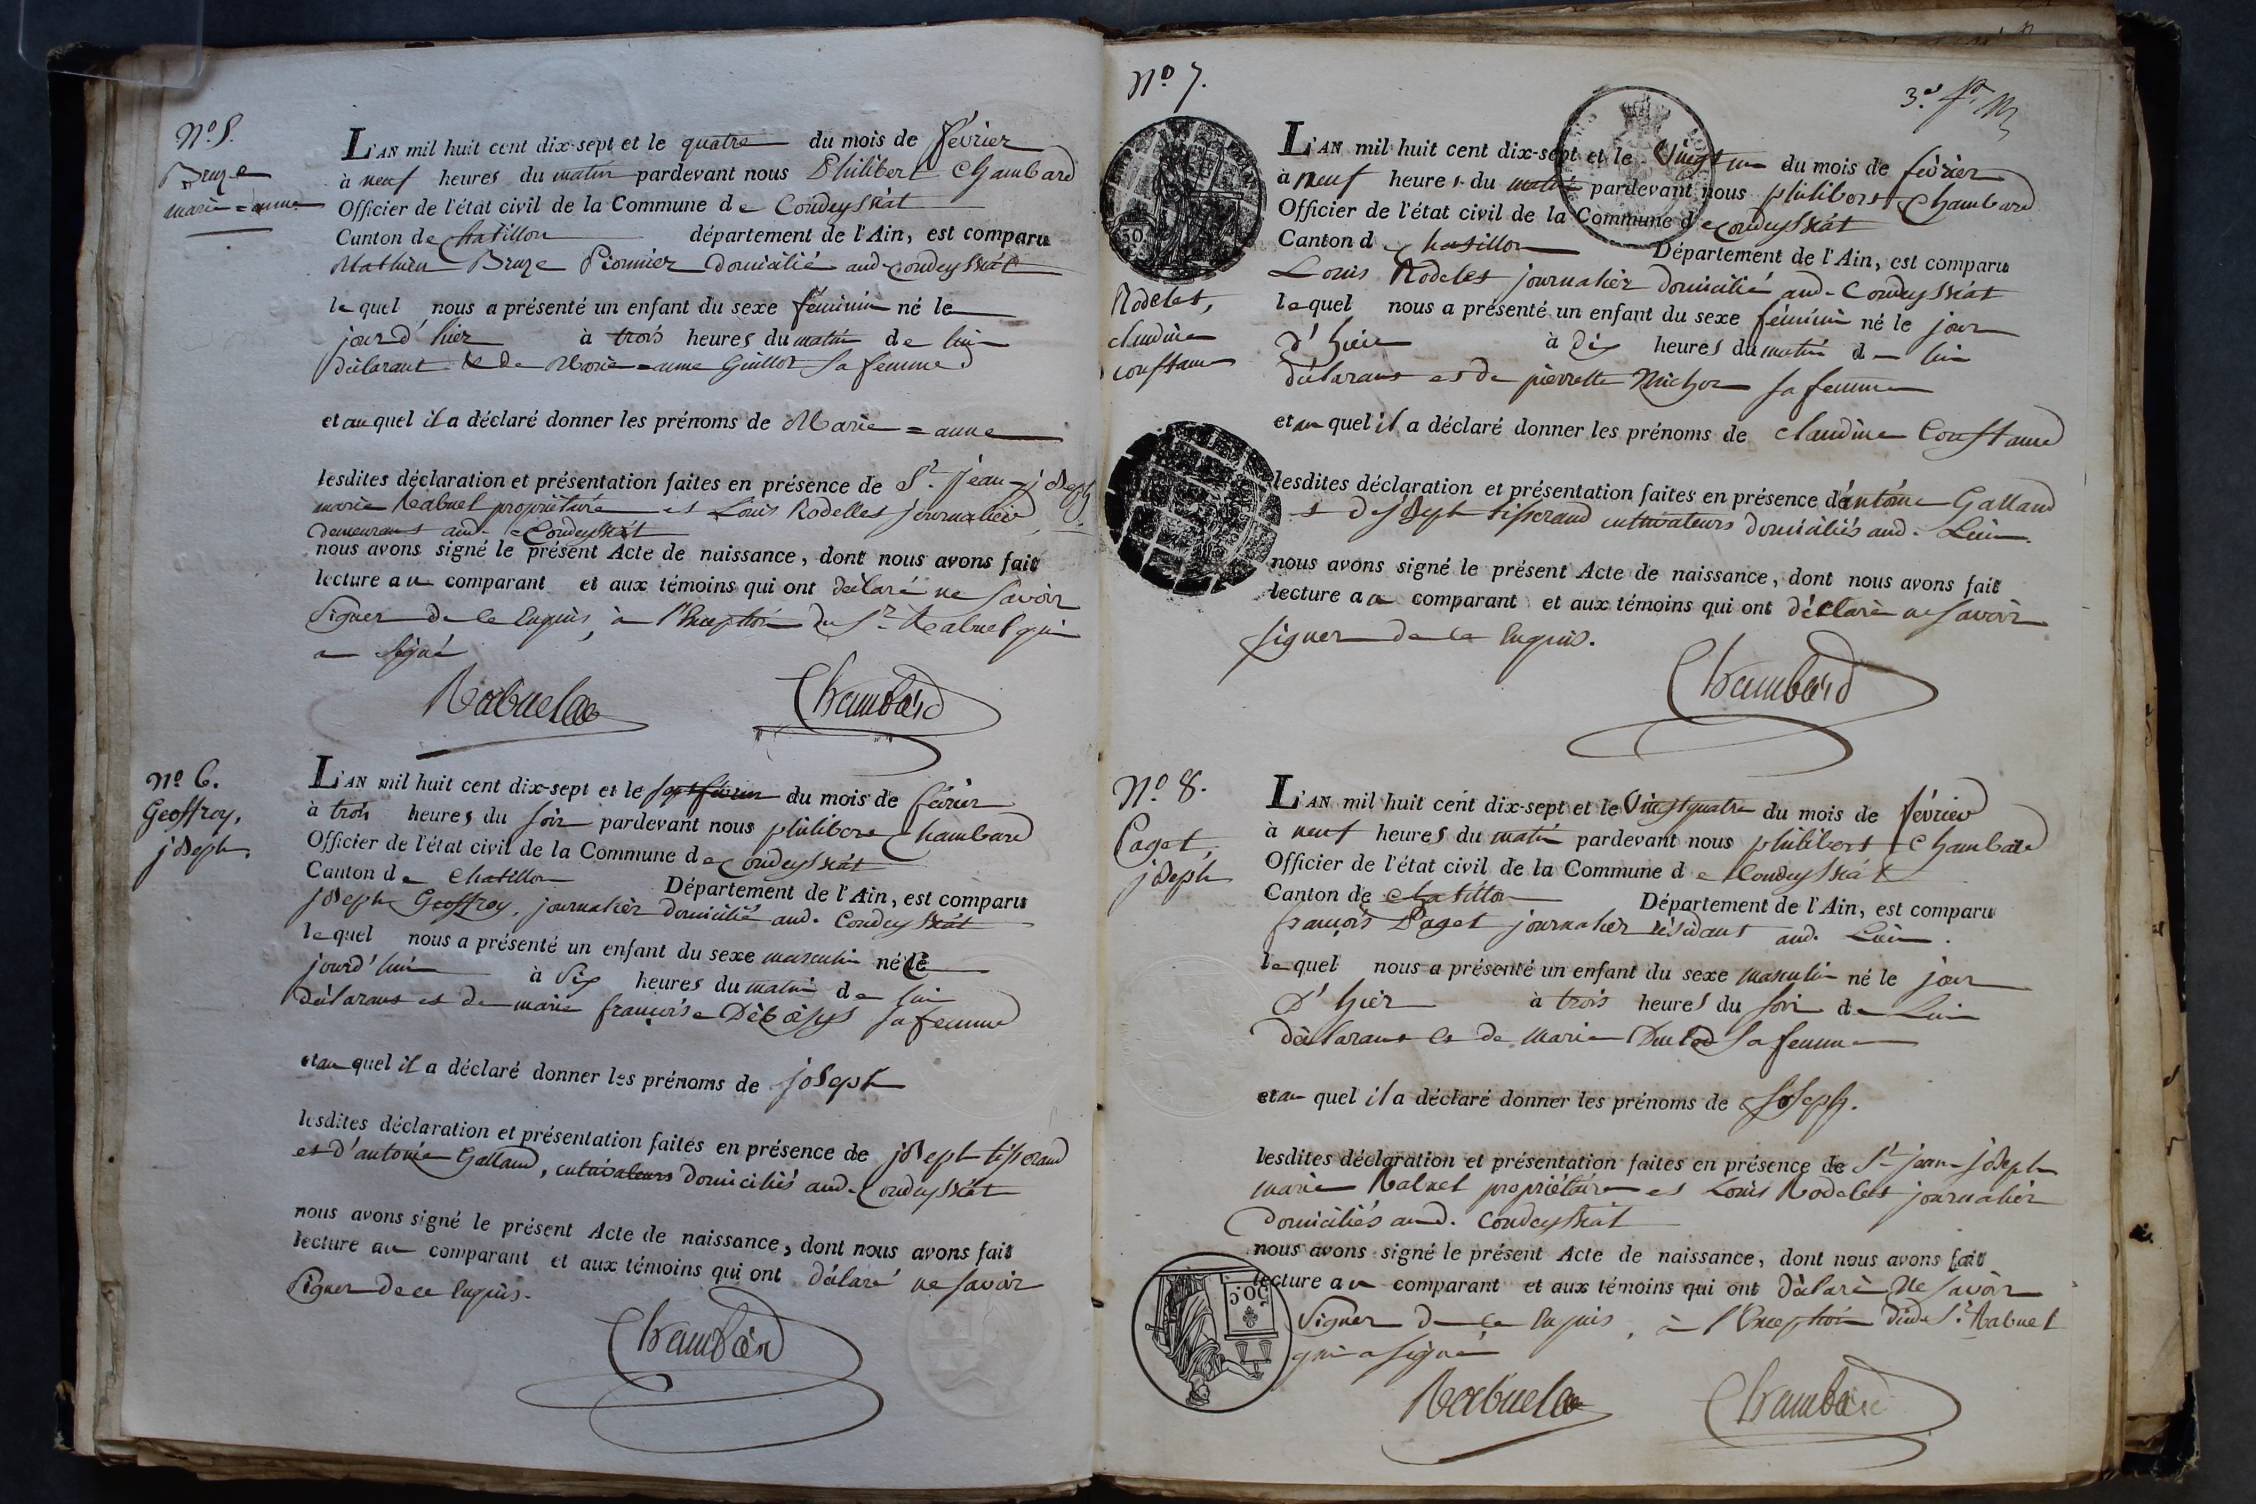 N.º 5.
Bruge
marie = anne
L'AN mil huit cent dix-sept et le quatre du mois de février
à neuf heures du matin pardevant nous Philibert Chambard
Officier de l'état civil de la Commune de Condeyssiat
Canton de Chatillon département de l'Ain, est comparu
Mathieu Bruge Pionnier domicilié aud. Condeyssiat
lequel nous a présenté un enfant du sexe féminin né le
jour d'hier à trois heures du matin de lui
déclarant & de Marie = anne Guillot sa femme
et auquel il a déclaré donner les prénoms de Marie = anne
lesdites déclaration et présentation faites en présence de Sr. Jean-joseph
marie Rabuel propriétaire et Louis Rodelles journalier,
demeurans aud. Condeyssiat
nous avons signé le présent Acte de naissance, dont nous avons fait
lecture au comparant et aux témoins qui ont déclaré ne savoir
signer de ce enquis, à l'Exception du Sr. Rabuel qui
a signé
Rabuel Chambard
Nº 6.
Geoffroy,
joseph.
L'AN mil huit cent dix-sept et le sept février du mois de février
à trois heures du soir pardevant nous philibert Chambard
Officier de l'état civil de la Commune de Condeyssiat
Canton de Chatillon Département de l'Ain, est comparu
joseph Geoffroy, journalier domicilié aud. Condeyssiat
lequel nous a présenté un enfant du sexe masculin né le
jourd'hui à six heures du matin de lui
déclarant et de marie françoise sa femme
et auquel il a déclaré donner les prénoms de joseph
lesdites déclaration et présentation faites en présence de joseph tisserand
et d'antoine Galland, cultivateurs domiciliés aud. Condeyssiat
nous avons signé le présent Acte de naissance, dont nous avons fait
lecture au comparant et aux témoins qui ont déclaré ne savoir
signer de ce enquis.
Chambard
Nº 7.
3.e
Rodelet,
claudine
constance
L'AN mil huit cent dix-sept et le Vingt un du mois de février
à neuf heures du matin pardevant nous philibert Chambard
Officier de l'état civil de la Commune de Condeyssiat
Canton de Chatillon Département de l'Ain, est comparu
Louis Rodelet journalier domicilié aud. Condeyssiat
lequel nous a présenté un enfant du sexe féminin né le jour
d'hier à dix heures du matin de lui
déclarant et de pierrette Michon sa femme
et auquel il a déclaré donner les prénoms de claudine Constance
lesdites déclaration et présentation faites en présence d'antoine Galland
et de joseph tisserand cultivateurs domiciliés aud. Lieu.
nous avons signé le présent Acte de naissance, dont nous avons fait
lecture au comparant et aux témoins qui ont déclaré ne savoir
signer de ce enquis.
Chambard
Nº 8.
Paget,
joseph
L'AN mil huit cent dix-sept et le Vingt quatre du mois de février
à neuf heures du matin pardevant nous philibert Chambard
Officier de l'état civil de la Commune de Condeyssiat
Canton de Chatillon Département de l'Ain, est comparu
françois Paget journalier résidant aud. Lieu.
lequel nous a présenté un enfant du sexe masculin né le jour
D'hier à trois heures du soir de Lui
déclarant et de marie sa femme
et auquel il a déclaré donner les prénoms de Joseph.
lesdites déclaration et présentation faites en présence de Sr. jean-joseph
marie Rabuel propriétaire et Louis Rodelet journalier
domiciliés aud. Condeyssiat
nous avons signé le présent Acte de naissance, dont nous avons fait
lecture au comparant et aux témoins qui ont déclaré ne savoir
signer de ce enquis, à l'Exception dud. Sr. Rabuel
qui a signé
50 c
Rabuel Chambard